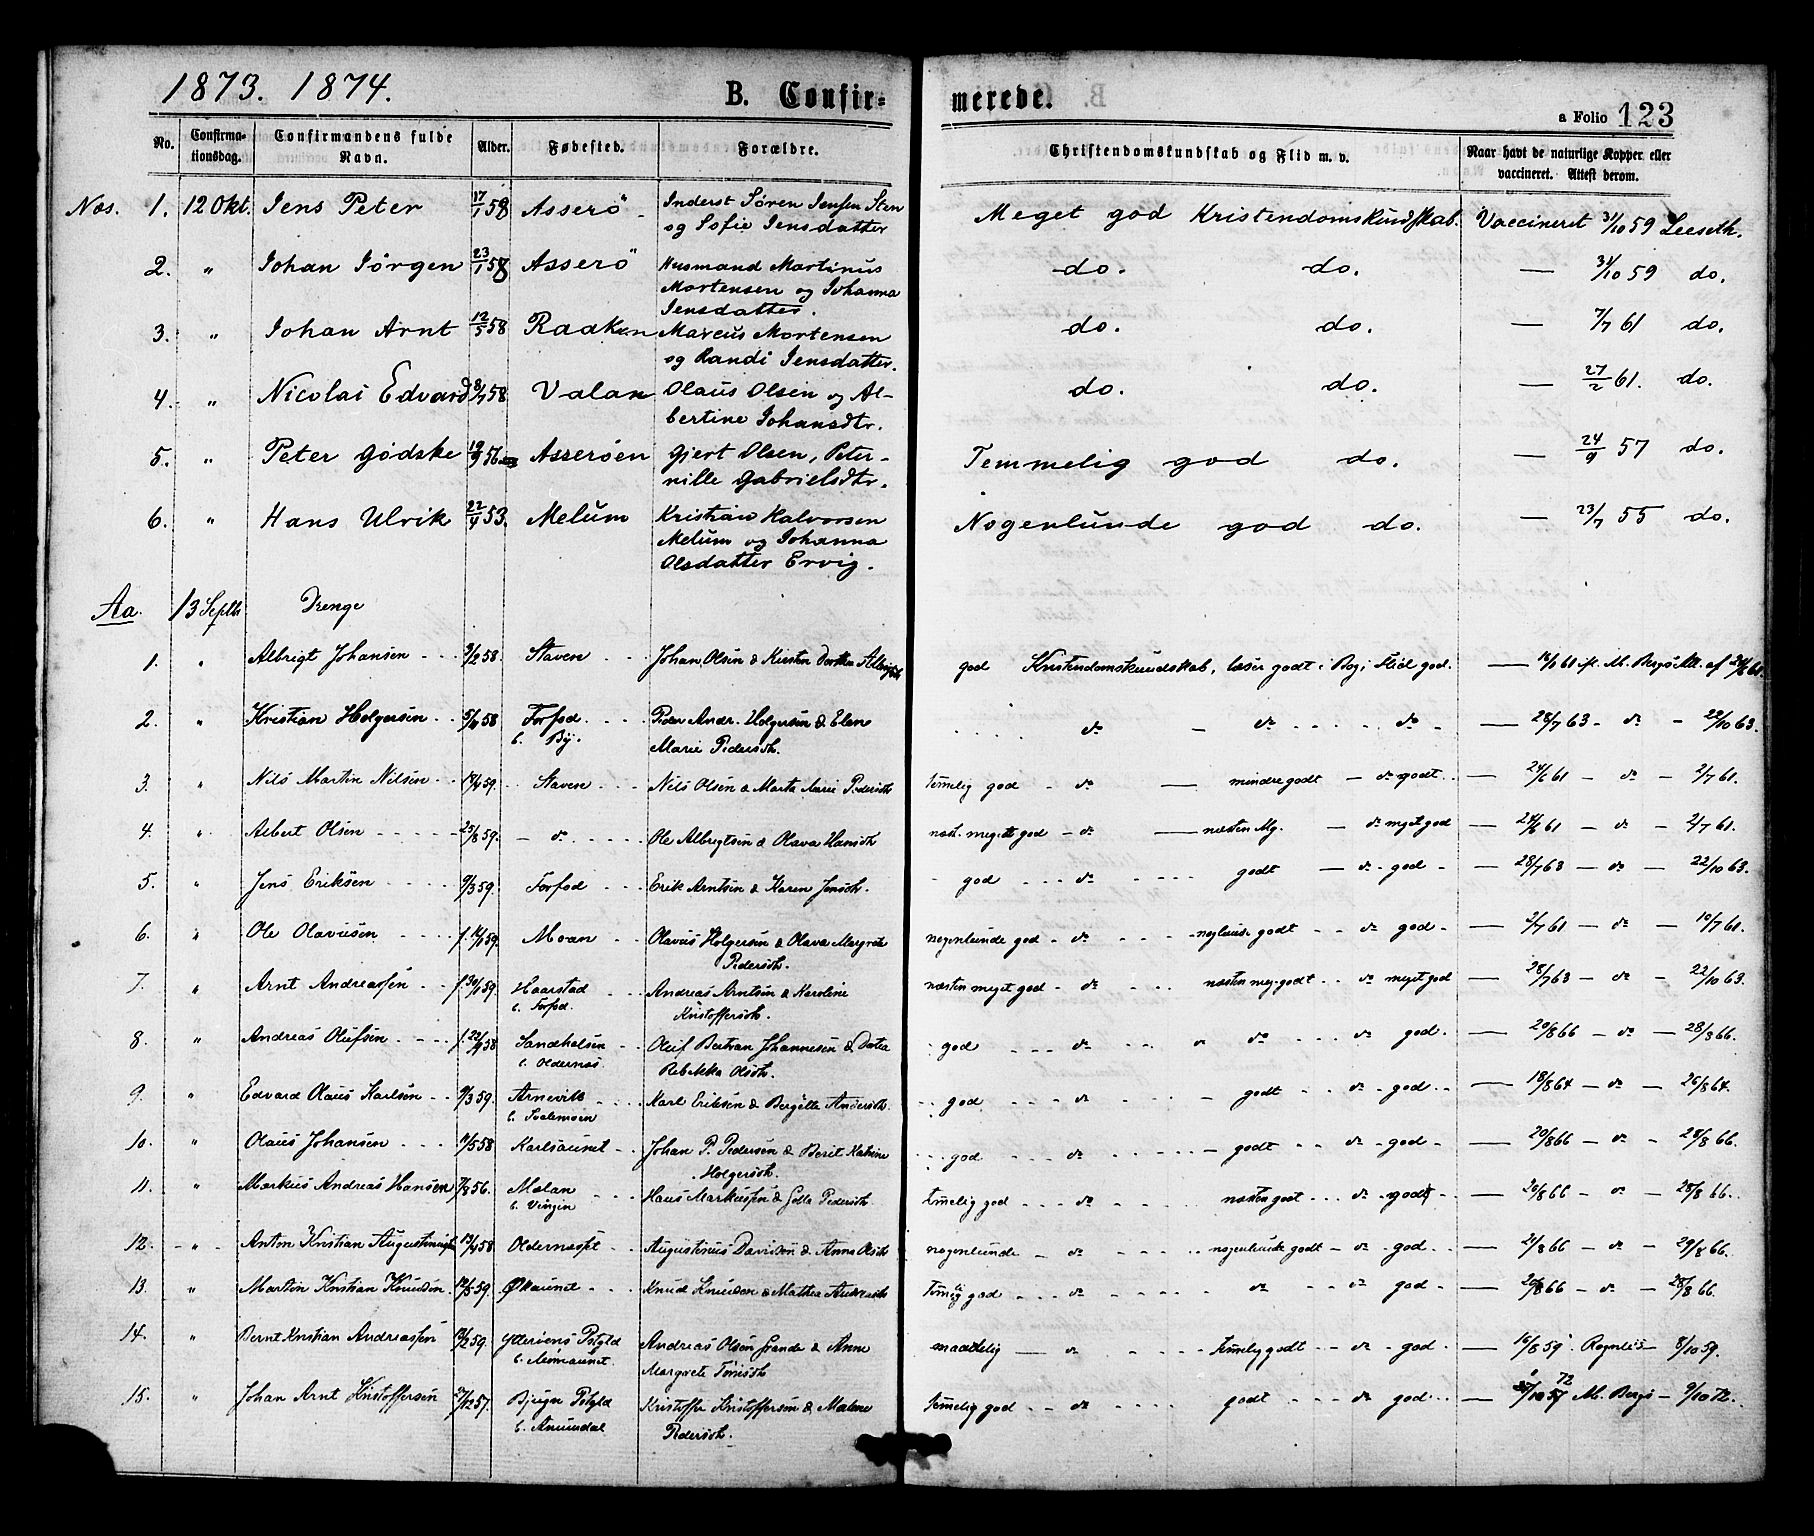 1873. 1874.
B. Confir-
merede.
a Folio 123
No.
Confirma-
tionsdag.
Confirmandens fulde
Navn.
Alder.
Fødested.
Forældre.
Christendomskundskab og Flid m. v.
Naar havt de naturlige Kopper eller
vaccineret. Attest derom.
Næs. 1. 12 Okt. Jens Peter 17/1 58 Asserö Inderst Søren Jensen Sten
og Sofie Jensdatter
Meget god Kristendomskundskab. Vaccineret 31/10 59 Leeseth.
2. " Johan Jørgen 23/1 58 Asserö Husmand Martinus
Mortensen og Johanna
Jensdatter.
do. do. — 31/10 59 do.
3. " Johan Arnt 12/5 58 Raaken Marcus Mortensen
og Randi Jensdatter.
do. do. — 7/7 61 do.
4. " Nicolai Edvard 8/7 58 Valan Olaus Olsen og Al-
bertine Johansdtr.
do. do. — 27/2 61. do.
5. " Peter Gødske 19/9 56 Asseröen Gjert Olsen, Peter-
nille Gabrielsdtr.
Temmelig god do. — 24/9 57 do.
6. " Hans Ulrik 22/4 53. Melum Kristian Halvorsen
Melum og Johanna
Olsdatter Ervig.
Nogenlunde god do. — 23/7 55 do.
Aa. 13 Septbr Drenge
1. " Albrigt Johansen 58. Staven Johan Olsen & Kirsten Dorthea
god Kristendomskundskab, læser godt i Bog, Flid god. —
2. " Kristian Holgersen 58 Forfod Peder Andr. Holgersen & Elen
b. By. Marie Pedersdtr.
do — do do — 28/7 63 — do — 22/10 63.
3. " Nils Martin Nilsen 59. Staven Nils Olsen & Marta Marie Pedersdtr
temelig god — do — mindre godt — do godt — 24/6 61 — do — 2/7 61.
4. " Albert Olsen 25/8 59. — do Ole Albrigtsen & Olava Hansdtr
næst. meget god — do — næsten Mg. — do myet god — 24/6 61 — do — 2/7 61.
5. " Jens Eriksen 9/3 59. Forfod Erik Arntsen & Karen Jensdtr.
god do godt — do god — 28/7 63 — do — 22/10 63.
6. " Ole Olavesen 59. Moan Olavus Holgersen & Olava Margrete
Pedersdtr.
nogenlunde god — do godt do god — 2/7 61 — do — 10/7 61.
7. " Arnt Andreassen f. 30/1 59. Haarstad Andreas Arntsen & Karoline
b. Forfod. Kristoffersdtr.
næsten myet god — do næsten meg. godt do myet god — 28/7 63 — do — 22/10 63.
8. " Andreas Olufsen 58 Sandholsen Oluf Bertran Johannesen & Dortea
b. Oldernæs. Rebekka Olsdtr.
god do do god — 20/8 66 — do — 28/8 66.
9. " Edvard Olaus Karlsen 9/3 59. Arnevik Karl Eriksen & Bergitte Andersdtr.
god do godt do god — 18/8 64 — do — 26/8 64.
10. " Olaus Johansen 11/5 58 Karlsaunet Johan P. Pedersen & Berit Katrine
Holgersdtr.
god do godt do god — 20/8 66 — do — 28/8 66.
11. " Markus Andreas Hansen 7/8 56. Mælan Hans Markussen & Golla Pedersdtr.
b. Vingen
temelig god do næsten godt do godt — 20/8 66 — do — 28/8 66.
12. " Anton Kristian 13/4 58 Oldernæsset Augustinus Davidsen & Anna Olsdtr
nogenlunde — do nogenlunde godt — do god — 21/8 66 — do — 29/8 66.
13. " Martin Kristian Knudsen. 12/5 59. Økaunet Knud Knudsen & Mathea Andersdtr
temelig god do do do god — 20/8 66 — do — 28/8 66.
14. " Bernt Kristian Andreassen 59. Ytteröens Pstgld Andreas Olsen Grande & Anne
Margrete Tönisdtr.
maadelig — do temelig godt do god — 16/8 59. 8/10 59.
15. " Johan Arnt Kristoffersen 27/12 57. Bjugn Pstgld Kristoffer Kristoffersen & Malene
Pedersdtr.
temelig god do godt do god — M. Bergs — 9/10 72.